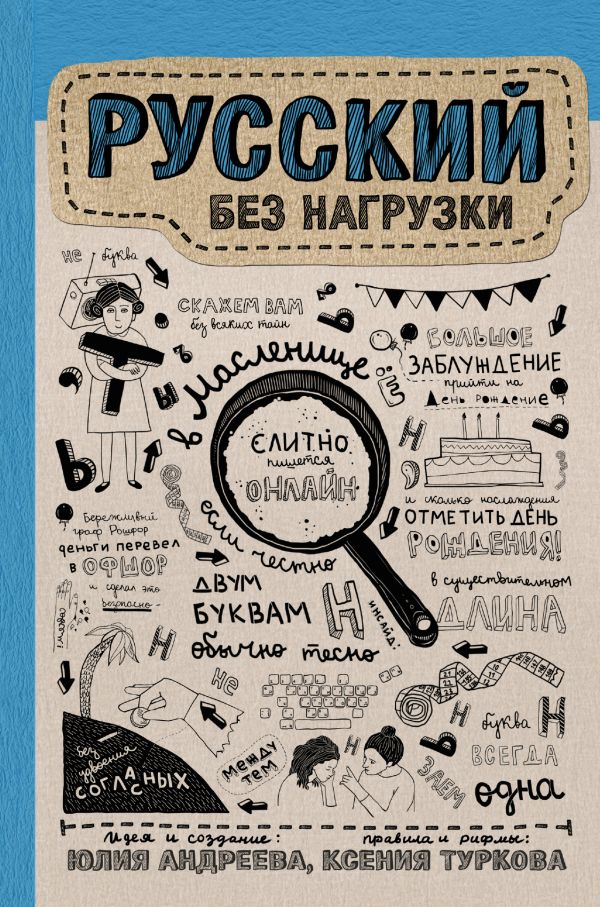 РУССКИЙ
БЕЗ НАГРУЗКИ
не буква
Т
СКАЖЕМ ВАМ
без всяких тайн
в Масленице
СЛИТНО
пишется
ОНЛАЙН
БОЛЬШОЕ
ЗАБЛУЖДЕНИЕ
прийти на
День рождение
и сколько наслаждения
ОТМЕТИТЬ ДЕНЬ
РОЖДЕНИЯ!
Бережливый
граф Рошфор
деньги перевел
в ОФШОР
и сделал это
безопасно -
совсем!
без
удвоения
СОГЛАСНЫХ
С
если честно
ДВУМ
БУКВАМ
Н
обычно тесно
инсайд:
в существительном
ДЛИНА
буква Н
ВСЕГДА
одна
не
МЕЖДУ
ТЕМ
ЗАЕМ
Идея и создание: правила и рифмы:
ЮЛИЯ АНДРЕЕВА, КСЕНИЯ ТУРКОВА